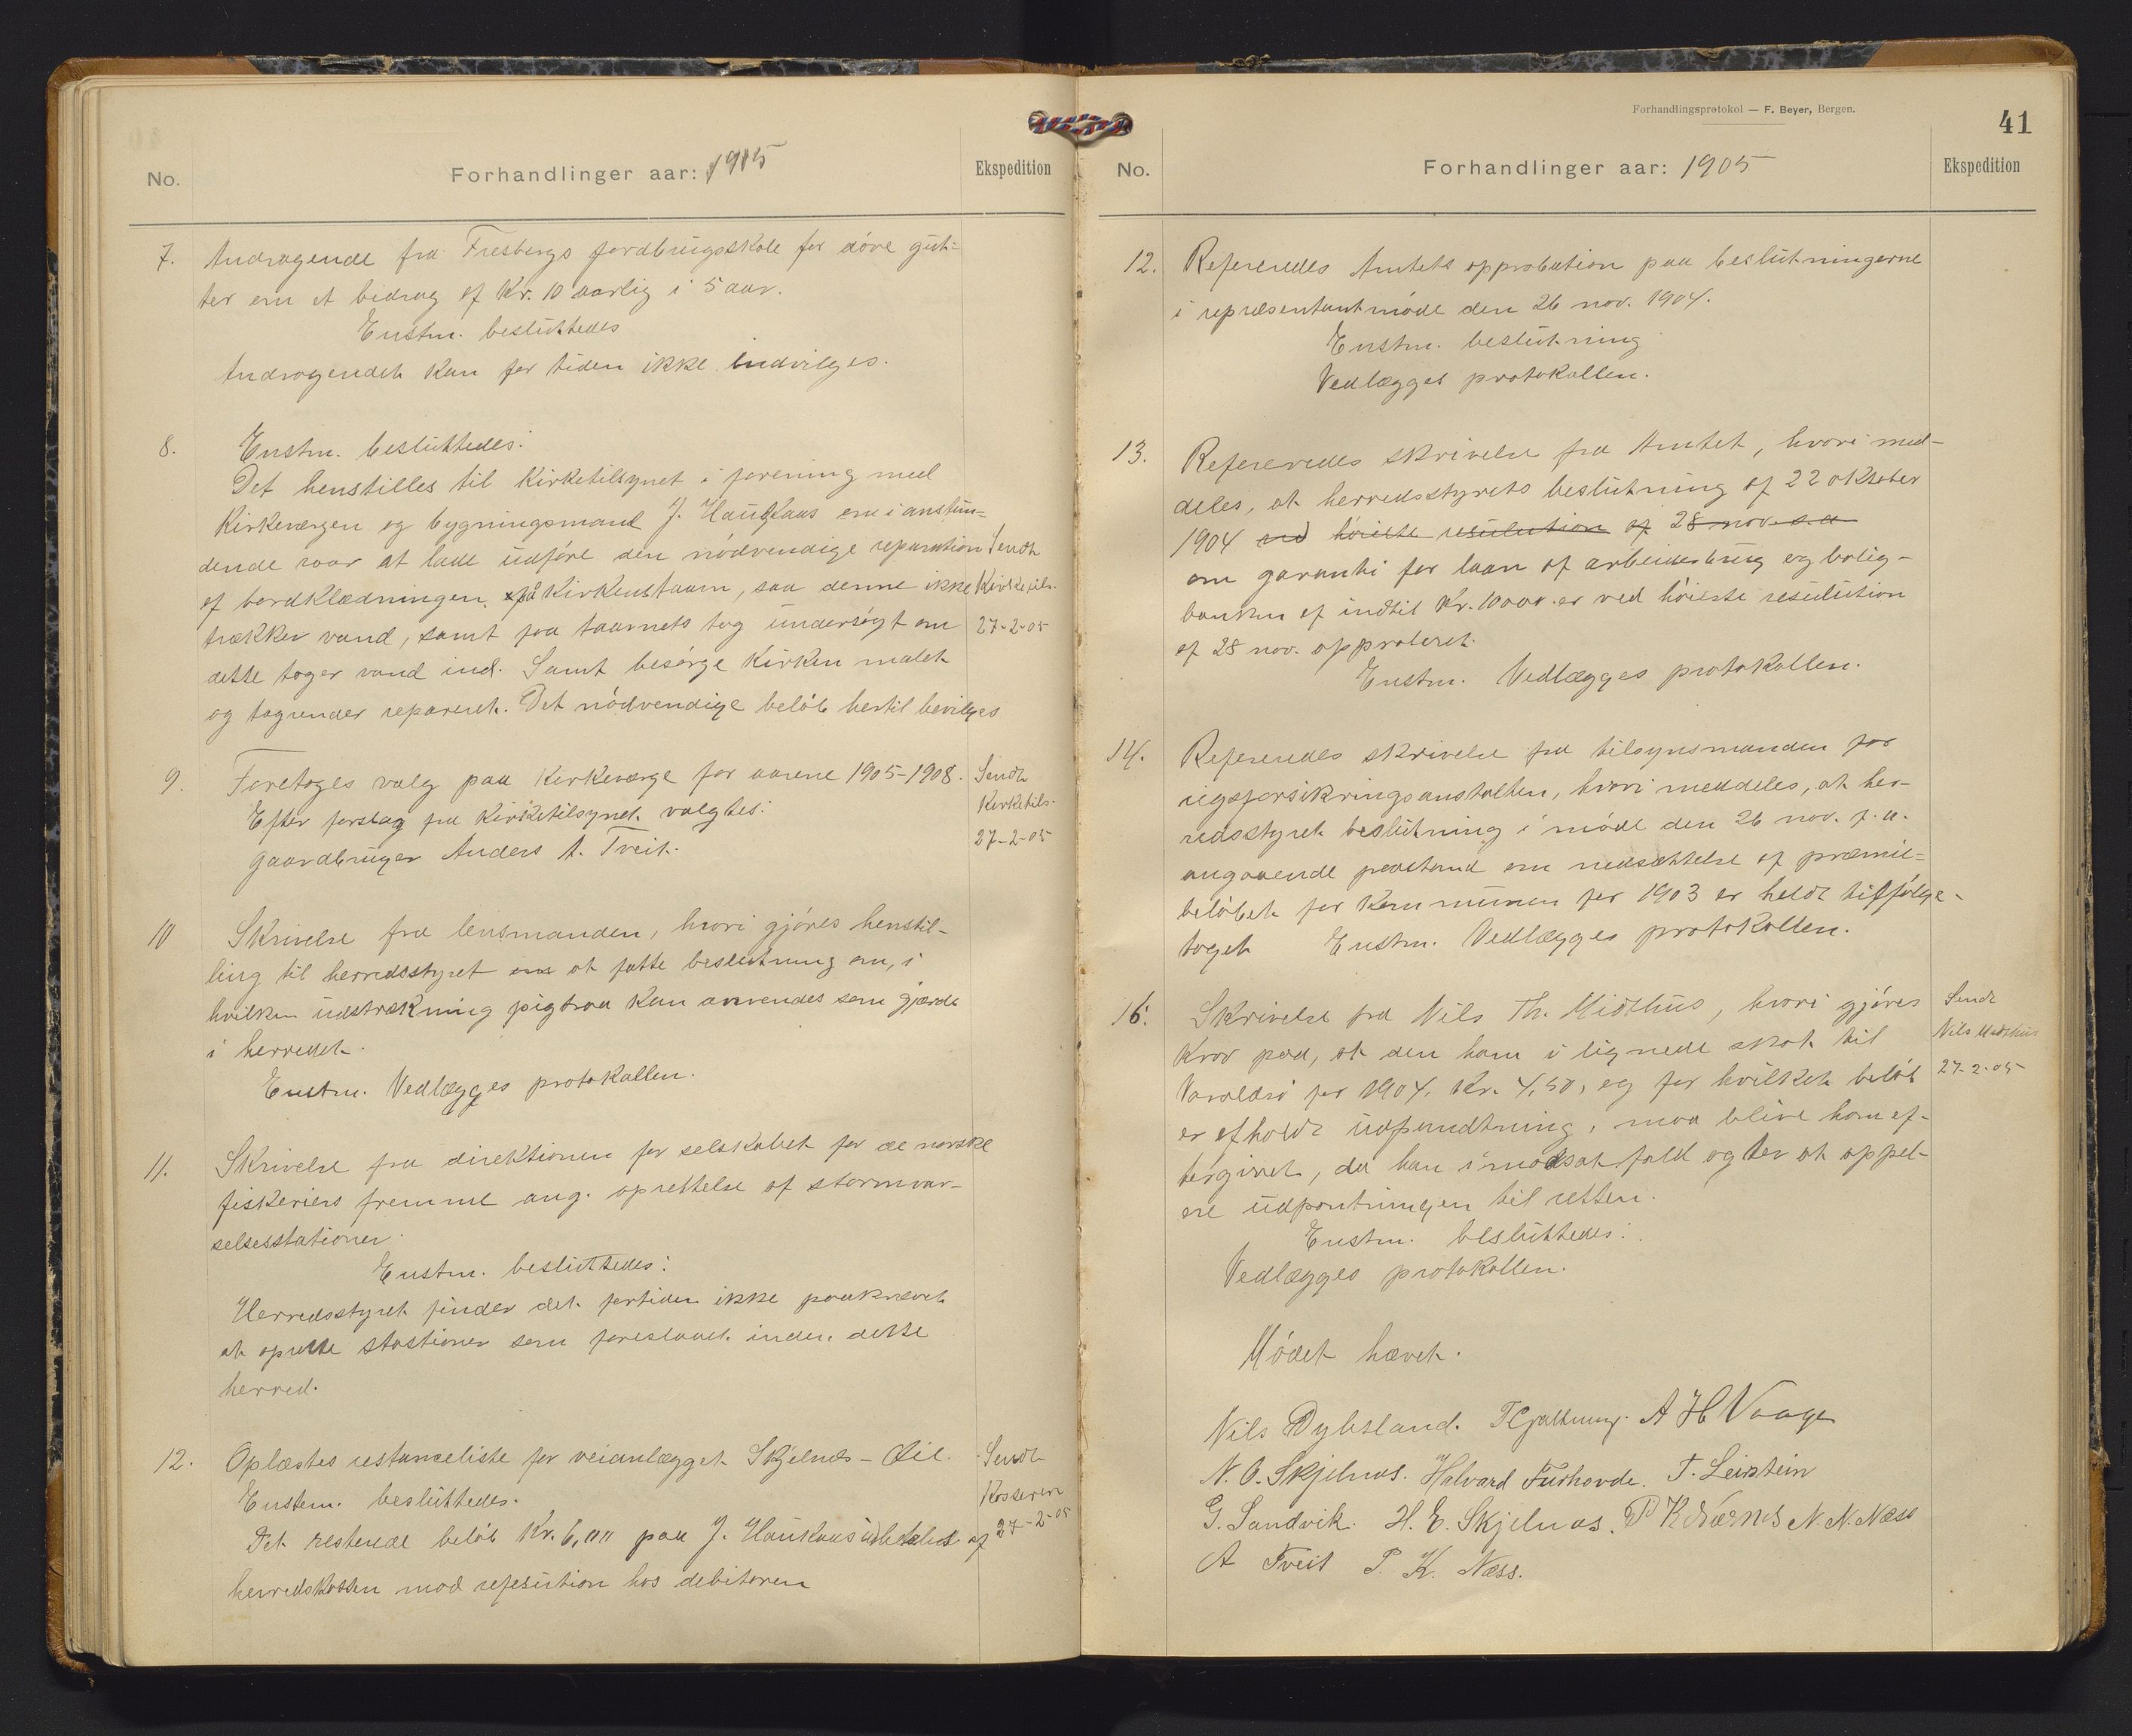 No.
Forhandlinger aar: 1905
Ekspedition
7. Andragende fra Fresbergs jordbrugsskole for döve gut-
ter om et bidrag af Kr. 10 aarlig i 5 aar.
Enstm. besluttedes
Andragendet kan for tiden ikke indvilges.
8. Enstm. besluttedes:
Det henstilles til Kirketilsynet i forening med
Kirkevergen og bygningsmand J. Haukaas om i anstun-
dende vaar at lade udföre den nödvendige reparation
af bordklædningen på Kirkens taarn, saa denne ikke
trækker vand, samt faa taarnets tag undersögt om
dette tager vand ind. Samt besörge Kirken malet
og tagrender reparert. Det nödvendige belöb hertil bevilges
Sendt
Kirketils.
27-2-05
9. Foretoges valg paa Kirkeværge for aarene 1905-1908.
Efter forslag fra Kirketilsynet valgtes:
Gaardbruger Anders A. Tveit.
Sendt
Kirketils.
27-2-05
10 Skrivelse fra lensmanden, hvori gjöres henstil-
ling til herredsstyret om at fatte beslutning om, i
hvilken udstrækning pigtraa kan anvendes som gjærde
i herredet.
Enstm. Vedlægges protokollen.
11. Skrivelse fra direktionen for selskabet for de norske
fiskeriers fremme ang. oprettelse af stormvar-
selsesstationer.
Enstm. besluttedes:
Herredsstyret finder det fortiden ikke paakrævet
at oprette stastioner som foreslaaet inden dette
herred.
12. Oplæstes restanceliste for veianlægget Skjelnes - Øie.
Enstem. besluttedes.
Det resterede belöb Kr. 6,00 paa J. Haukaas udbetales af
herredskassen mod refesution hos debitoren
Sendt
Kasseren
27-2-05
Forhandlingsprotokol — F. Beyer, Bergen.
41
No.
Forhandlinger aar: 1905
Ekspedition
12. Refereredes Amtets approbation paa beslutningerne
i repræsentantmöde den 26 nov. 1904.
Enstm. beslutning
Vedlægges protokollen.
13. Refereredes skrivelse fra Amtet, hvori med-
deles, at herredsstyrets beslutning af 22 oktober
1904 ved höieste resulution af 28 nov. s.a.
om garanti for laan af arbeiderbrug og bolig-
banken af indtil Kr. 10000 er ved höieste resulution
af 28 nov. approberet.
Enstm. Vedlægges protokollen.
14. Refereredes skrivelse fra tilsynsmanden for
rigsforsikringsanstalten, hvori meddeles, at her-
redsstyret beslutning i möde den 26 nov. f.a.
angaaende paastand om nedsættelse af præmie-
belöbet for Kommunen for 1903 er heldt tilfölge-
taget Enstm. Vedlægges protokollen.
16. Skrivelse fra Nils Th. Midthus, hvori gjöres
Krav paa, at den ham i lignede skat til
Varaldsö for 1904, Kr. 4,50, og for hvilket belöb
er afholdt udpandtning, maa blive ham ef-
tergivet, da han i modsat fald agter at appel-
ere udpantningen til retten.
Enstm. besluttedes:
Vedlægges protokollen.
Sendt
Nils Midthus
27-2-05
Mödet hævet.
Nils Dybsland. T Gjaltung. A H Vaage
N. O. Skjelnas. Halvard Furhovde. T. Leirstein
G. Sandvik. H. E. Skjelnas. P K Nærnes N. N. Næss
A Tveit P. K. Næss.